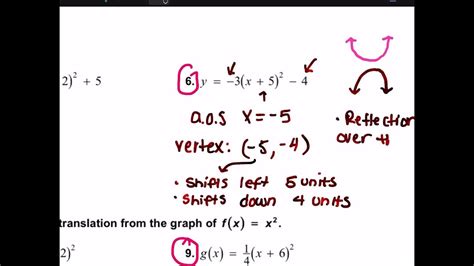 2)² + 5
6. y = −3(x + 5)² − 4
a.o.s x = -5
vertex: (-5, -4)
• Reflection
over
• Shifts left 5 units
• Shifts down 4 units
translation from the graph of f(x) = x².
2)²
9. g(x) = 1/4(x + 6)²